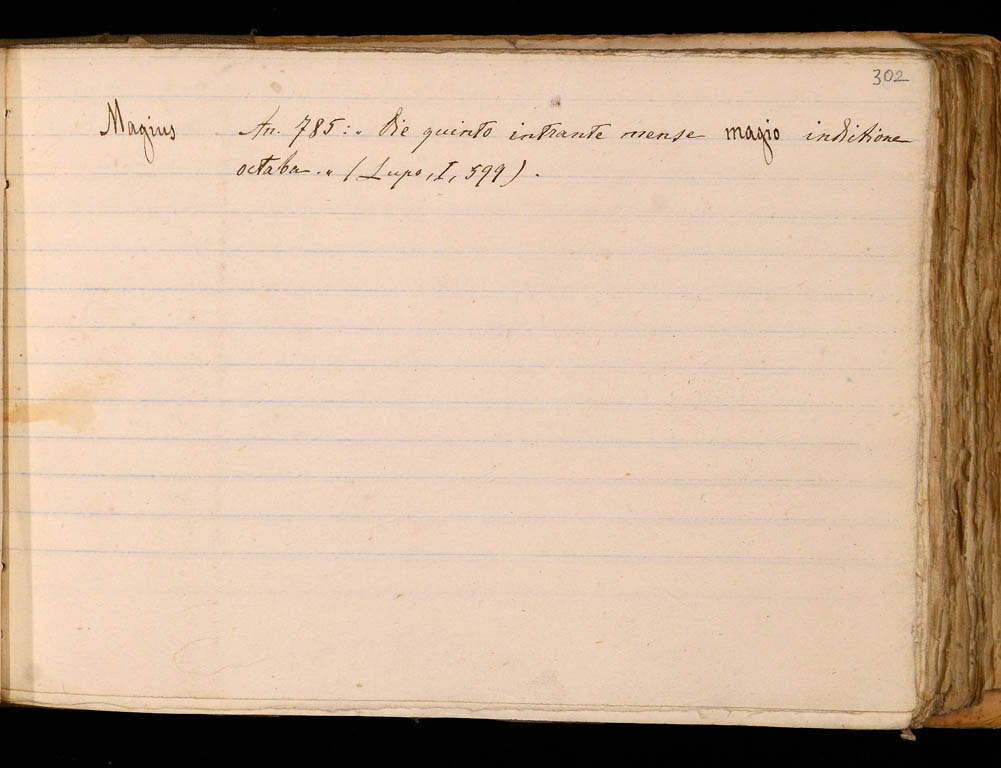 302
Magius An. 785: „ Die quinto intrante mense magio inditione
octaba. „ (Lupo, I, 599).